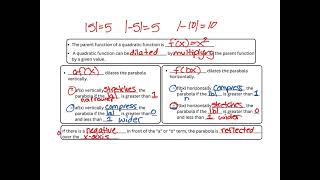 |5|=5 |-5|=5 |-10|=10
• The parent function of a quadratic function is f(x)=x²
• A quadratic function can be dilated by multiplying the parent function
by a given value.
af(x) dilates the parabola
vertically.
f(bx) dilates the parabola
horizontally.
af(x) vertically stretches
the parabola if the |a| is greater than 1
narrower
af(x) vertically compress
the parabola if the |a| is greater than 0
and less than 1 wider
f(bx) horizontally compress
the parabola if the |b| is greater than 1
n
f(bx) horizontally stretches
the parabola if the |b| is greater than 0
and less than 1 wider
If there is a negative in front of the "a" or "b" term, the parabola is reflected
over the x-axis